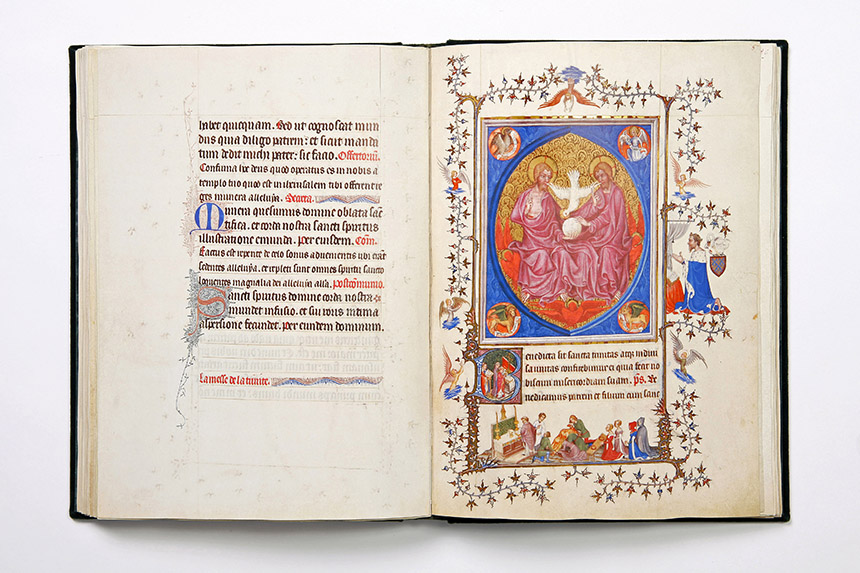 habet quicquam. Sed ut cognoscat mun
dus quia diligo patrem: et sicut manda
tum dedit michi pater: sic facio. Offertoriu.
Confirma hoc deus quod operatus es in nobis a
templo tuo quod est in iherusalem tibi offerent re
ges munera alleluya. Secreta.
Munera quesumus domine oblata sanc
tifica. et corda nostra sancti spiritus
illustratione emunda. per eiusdem. Com.
Factus est repente de celo sonus advenientis ubi erant
sedentes alleluya. et repleti sunt omnes spiritu sancto
loquentes magnalia dei alleluya alla. postcommunio.
Sancti spiritus domine corda nostra
mundet infusio. et sui roris intima
aspersione fecundet. per eundem dominum.
La messe de la trinite.
Benedicta sit sancta trinitas atqz indivi
sa unitas confitebimur ei quia fecit no
biscum misericordiam suam. ps. Be
nedicamus patrem et filium cum sanc